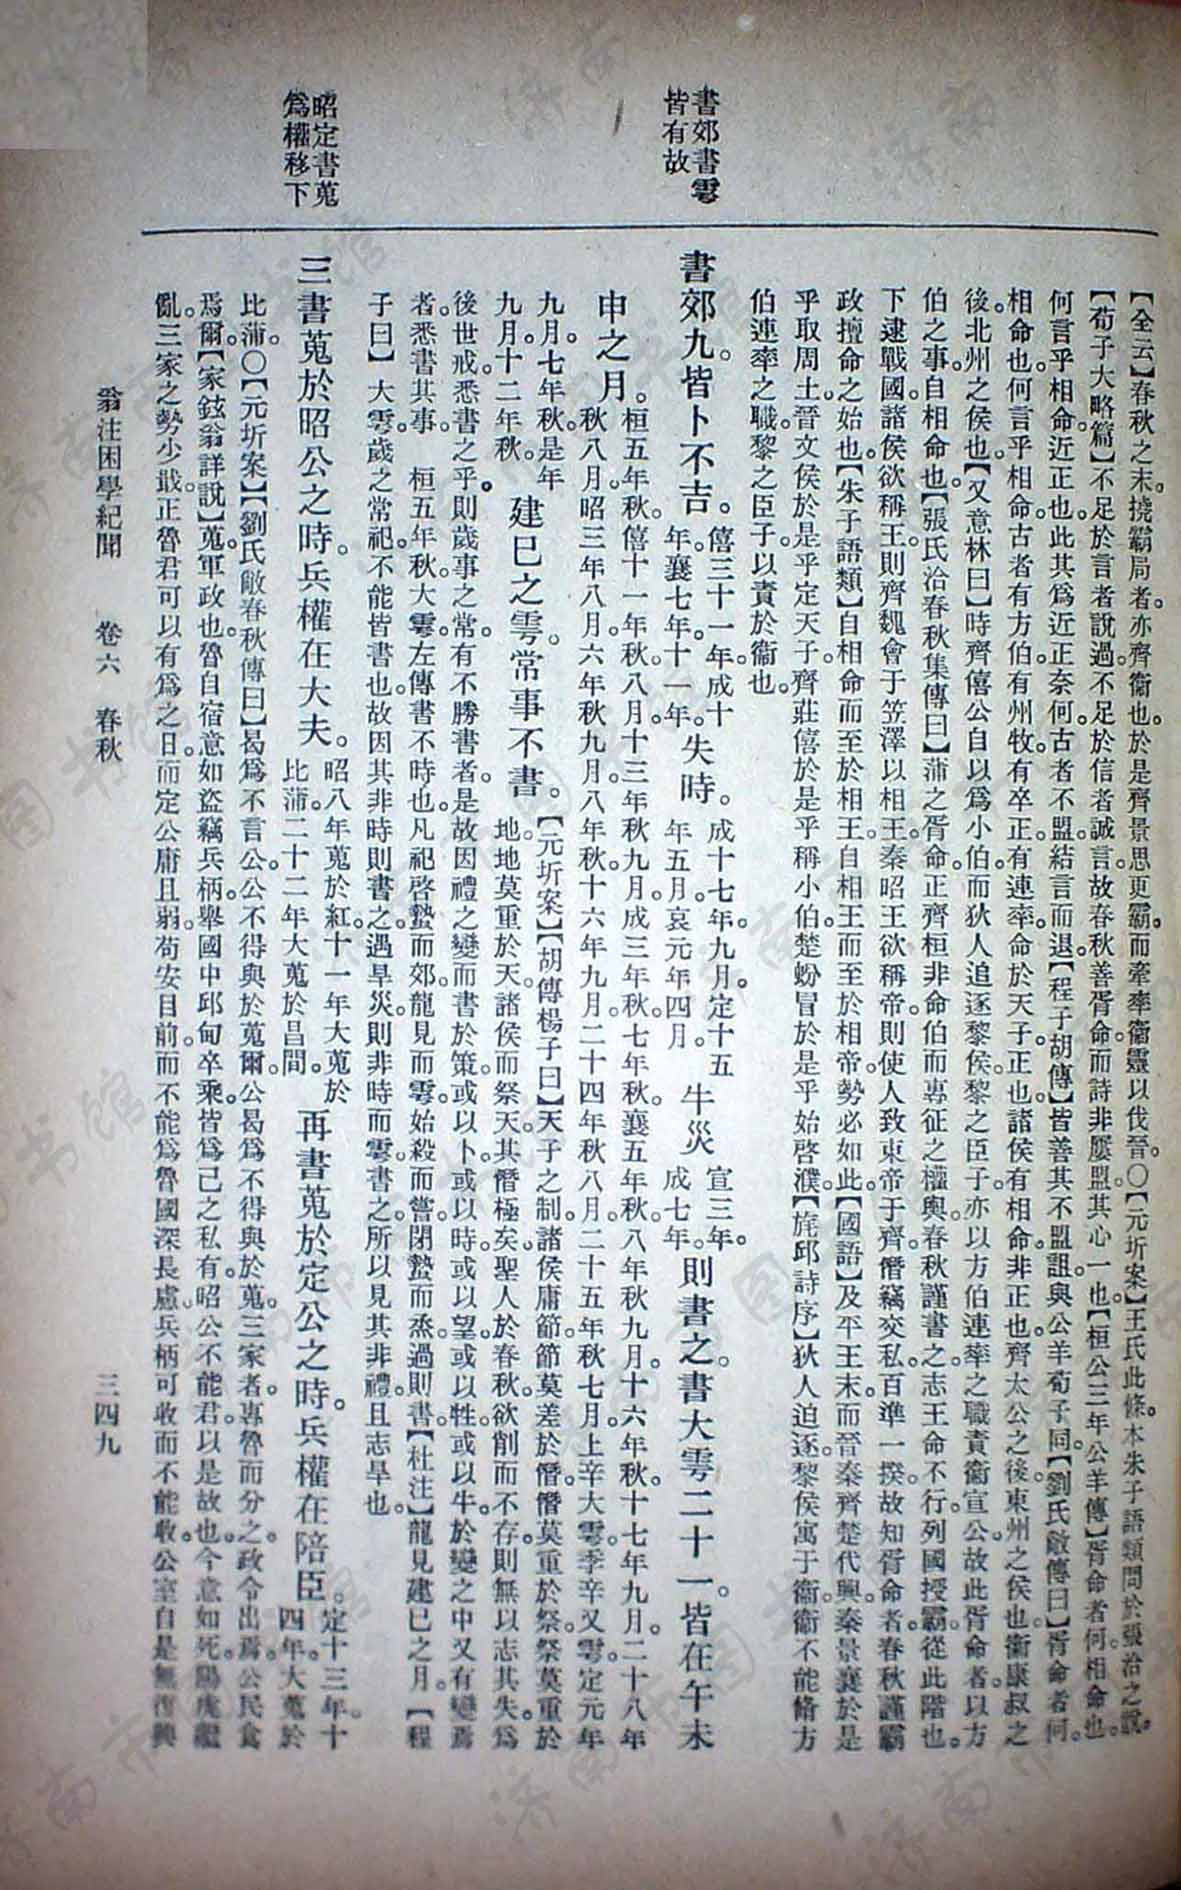 書郊書雩
皆有故
昭定書蒐
爲權移下
【全云】春秋之末撓霸局者亦齊衞也。於是齊景思更霸而牽率衞靈以伐晉。〇【元圻案】王氏此條本朱子語類問於張洽之說。
【荀子大略篇】不足於言者說過不足於信者誠言。故春秋善胥命。而詩非屢盟。其心一也。【桓公三年公羊傳】胥命者何。相命也。
何言乎相命。近正也。此其爲近正奈何。古者不盟。結言而退。【程子胡傳】皆善其不盟詛。與公羊荀子同。【劉氏敞傳曰】胥命者何。
相命也。何言乎相命。古者有方伯。有州牧。有卒正。有連率。命於天子。正也。諸侯有相命。非正也。齊太公之後。東州之侯也。衞康叔之
後。北州之侯也。【又意林曰】時齊僖公自以爲小伯。而狄人追逐黎侯。黎之臣子。亦以方伯連率之職責衞宣公。故此胥命者。以方
伯之事。自相命也。【張氏洽春秋集傳曰】蒲之胥命。正齊桓非命伯而專征之權輿。春秋謹書之。志王命不行。列國授霸。從此階也。
下逮戰國。諸侯欲稱王。則齊魏會于笠澤以相王。秦昭王欲稱帝。則使人致東帝于齊。僭竊交私。百準一揆。故知胥命者。春秋謹霸
政擅命之始也。【朱子語類】自相命而至於相王。自相王而至於相帝。勢必如此。【國語】及平王末。而晉秦齊楚代興。秦景襄於是
乎取周土。晉文侯於是乎定天子。齊莊僖於是乎稱小伯。楚蚡冒於是乎始啓濮。【旄邱詩序】狄人迫逐黎侯寓于衞。衞不能脩方
伯連率之職。黎之臣子。以責於衞也。
書郊九。皆卜不吉。僖三十一年。成十年。襄七年。十一年。失時。成十七年。九月。定十五年五月。哀元年四月。牛災宣三年。成七年。則書之。書大雩二十一。皆在午未
申之月。桓五年秋。僖十一年秋。八月。十三年秋九月。成三年秋。七年秋。襄五年秋。八年秋九月。十六年秋。十七年九月。二十八年
秋八月。昭三年八月。六年秋九月。八年秋。十六年九月。二十四年秋八月。二十五年秋七月上辛大雩。季辛又雩。定元年
九月。七年秋。是年
九月。十二年秋。建巳之雩。常事不書。【元圻案】【胡傳楊子曰】天子之制。諸侯庸節。節莫差於僭。僭莫重於祭。祭莫重於
地。地莫重於天。諸侯而祭天。其僭極矣。聖人於春秋。欲削而不存。則無以志其失。爲
後世戒。悉書之乎。則歲事之常。有不勝書者。是故因禮之變而書於策。或以卜。或以時。或以望。或以牲。或以牛。於變之中又有變焉
者。悉書其事。 桓五年秋。大雩。左傳書不時也。凡祀啓蟄而郊。龍見而雩。始殺而嘗。閉蟄而烝。過則書。【杜注】龍見建巳之月。【程
子曰】大雩。歲之常祀。不能皆書也。故因其非時則書之。遇旱災。則非時而雩。書之。所以見其非禮。且志旱也。
三書蒐於昭公之時。兵權在大夫。昭八年蒐於紅。十一年大蒐於比蒲。二十二年大蒐於昌間。再書蒐於定公之時。兵權在陪臣。定十三年。十四年大蒐於
比蒲。〇【元圻案】【劉氏敞春秋傳曰】曷爲不言公。公不得與於蒐爾。公曷爲不得與於蒐。三家者專魯而分之。政令出焉。公民食
焉爾。【家鉉翁詳說】蒐。軍政也。魯自宿意如盜竊兵柄。舉國中邱甸卒乘。皆爲己之私有。昭公不能君。以是故也。今意如死。陽虎繼
亂。三家之勢少戢。正魯君可以有爲之日。而定公庸且弱。苟安目前。而不能爲魯國深長慮。兵柄可收而不能收。公室自是無復興
翁注困學紀聞 卷六 春秋 三四九